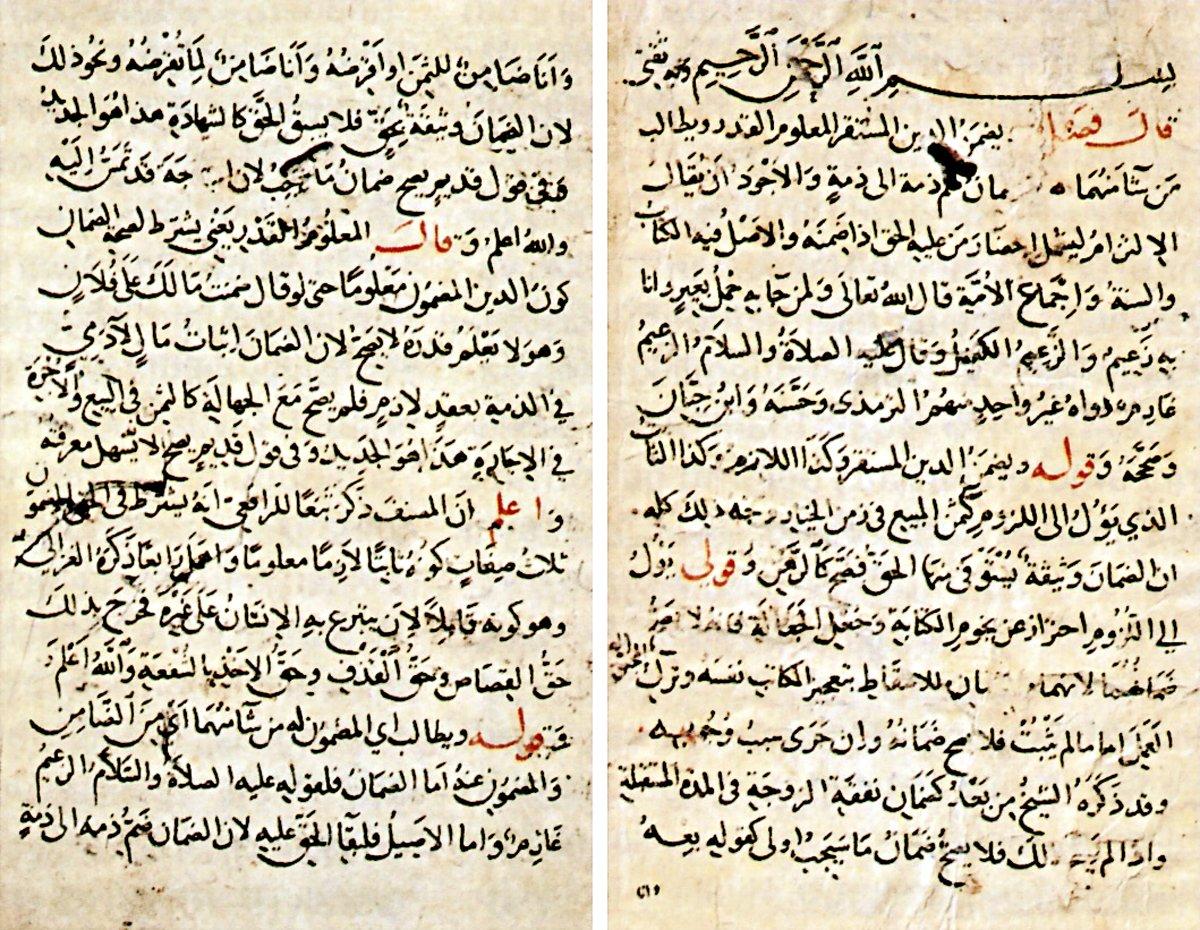 بسم الله الرحمن الرحيم وبه ثقتي
قال فصل يضمن الدين المستقر المعلوم القدر ويطالب
من شا منهما ضمان ضم ذمة الى ذمة والاجود ان يقال
الالتزام ليشمل احضار من عليه الحق اذا ضمنه والاصل فيه الكتاب
والسنة واجماع الامة قال الله تعالى ولمن جا به حمل بعير وانا
به زعيم والزعيم الكفيل وقال عليه الصلاة والسلام الزعيم
غارم رواه غير واحد منهم الترمذى وحسنه وابن حبان
وصححه وقوله ويضمن الدين المستقر وكذا اللازم وكذا الثابت
الذي يؤل الى اللزوم كثمن المبيع فى زمن الخيار وجه ذلك كله
ان الضمان وثيقة يستوفى منها الحق فصح كالرهن وقولي يؤل
الى اللزوم احتراز عن نجوم الكتابة وجعل الجعالة فانه لا يصح
ضمانهما لانهما للاسقاط بتعجيز المكاتب نفسه وترك
العمل اما ما لم يثبت فلا يصح ضمانه وان جرى سبب وجوبه
وقد ذكره الشيخ من بعد كضمان نفقة الزوجة فى المدة المستقبلة
واذا لم يصح ذلك فلا يصح ضمان ما سيجب اولى كقوله بعه
وانا ضامن للثمن او اقرضه وانا ضامن لما تقرضه ونحو ذلك
لان الضمان وثيقة بحق فلا يسبق الحق كالشهادة هذا هو الجديد
وفى قول قديم يصح ضمان ما سيجب لان الحاجة قد تمس اليه
والله اعلم وقال المعلوم القدر يعني يشترط لصحة الضمان
كون الدين المضمون معلوما حتى لو قال ضمنت مالك على فلان
وهو لا يعلم قدره لا يصح لان الضمان اثبات مال لآدمي
في الذمة بعقد لازم فلم يصح مع الجهالة كالثمن فى البيع والاجرة
في الاجارة هذا هو الجديد وفى قول قديم يصح لا تسهل معرفته
واعلم ان المصنف ذكر تبعا للرافعى انه يشترط فى الحق المضمون
ثلاث صفات كونه ثابتا لازما معلوما واهمل رابعا ذكره الغزالي
وهو كونه قابلا لان يتبرع به الانسان على غيره فخرج بذلك
حق القصاص وحق القذف وحق الاخذ بالشفعة والله اعلم
وقوله ويطالب اي المضمون له من شا منهما اي من الضامن
والمضمون عنه اما الضمان فلقوله عليه الصلاة والسلام الزعيم
غارم واما الاصيل فلبقا الحق عليه لان الضمان ضم ذمة الى ذمة